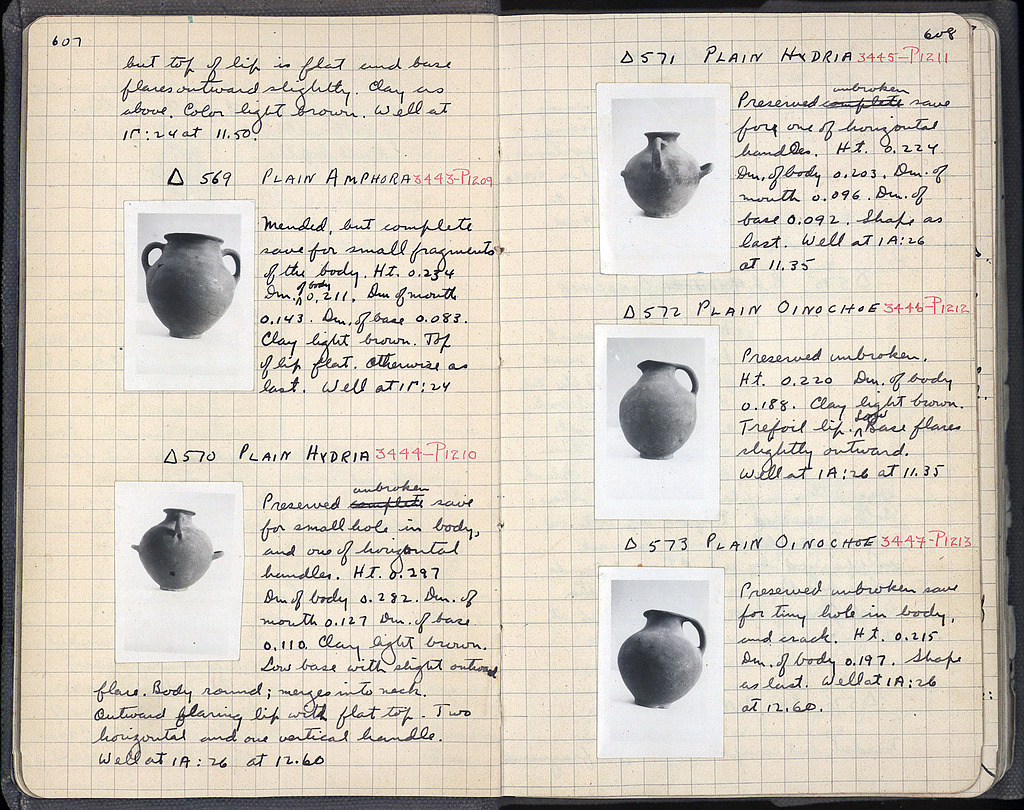 607
but top of lip is flat and base
flares outward slightly. Clay as
above. Color light brown. Well at
1Γ:24 at 11.50.
Δ 569 PLAIN AMPHORA 3443-P1209
Mended, but complete
save for small fragments
of the body. Ht. 0.234
Dm. of body 0.211. Dm of mouth
0.143. Dm. of base 0.083.
Clay light brown. Top
of lip flat. Otherwise as
last. Well at 1Γ:24
Δ570 PLAIN HYDRIA 3444-P1210
Preserved complete unbroken save
for small hole in body,
and one of horizontal
handles. Ht. 0.297
Dm of body 0.282. Dm. of
mouth 0.127 Dm. of base
0.110. Clay light brown.
Low base with slight outward
flare. Body round; merges into neck.
Outward flaring lip with flat top. Two
horizontal and one vertical handle.
Well at 1A:26 at 12.60
608
Δ571 PLAIN HYDRIA 3445-P1211
Preserved complete unbroken save
fore one of horizontal
handles. Ht. 0.224
Dm. of body 0.203. Dm. of
mouth 0.096. Dm. of
base 0.092. Shape as
last. Well at 1A:26
at 11.35
Δ572 PLAIN OINOCHOE 3446-P1212
Preserved unbroken.
Ht. 0.220 Dm. of body
0.188. Clay light brown.
Trefoil lip. Low Base flares
slightly outward.
Well at 1A:26 at 11.35
Δ 573 PLAIN OINOCHOE 3447-P1213
Preserved unbroken save
for tiny hole in body,
and crack. Ht. 0.215
Dm. of body 0.197. Shape
as last. Well at 1A:26
at 12.60.